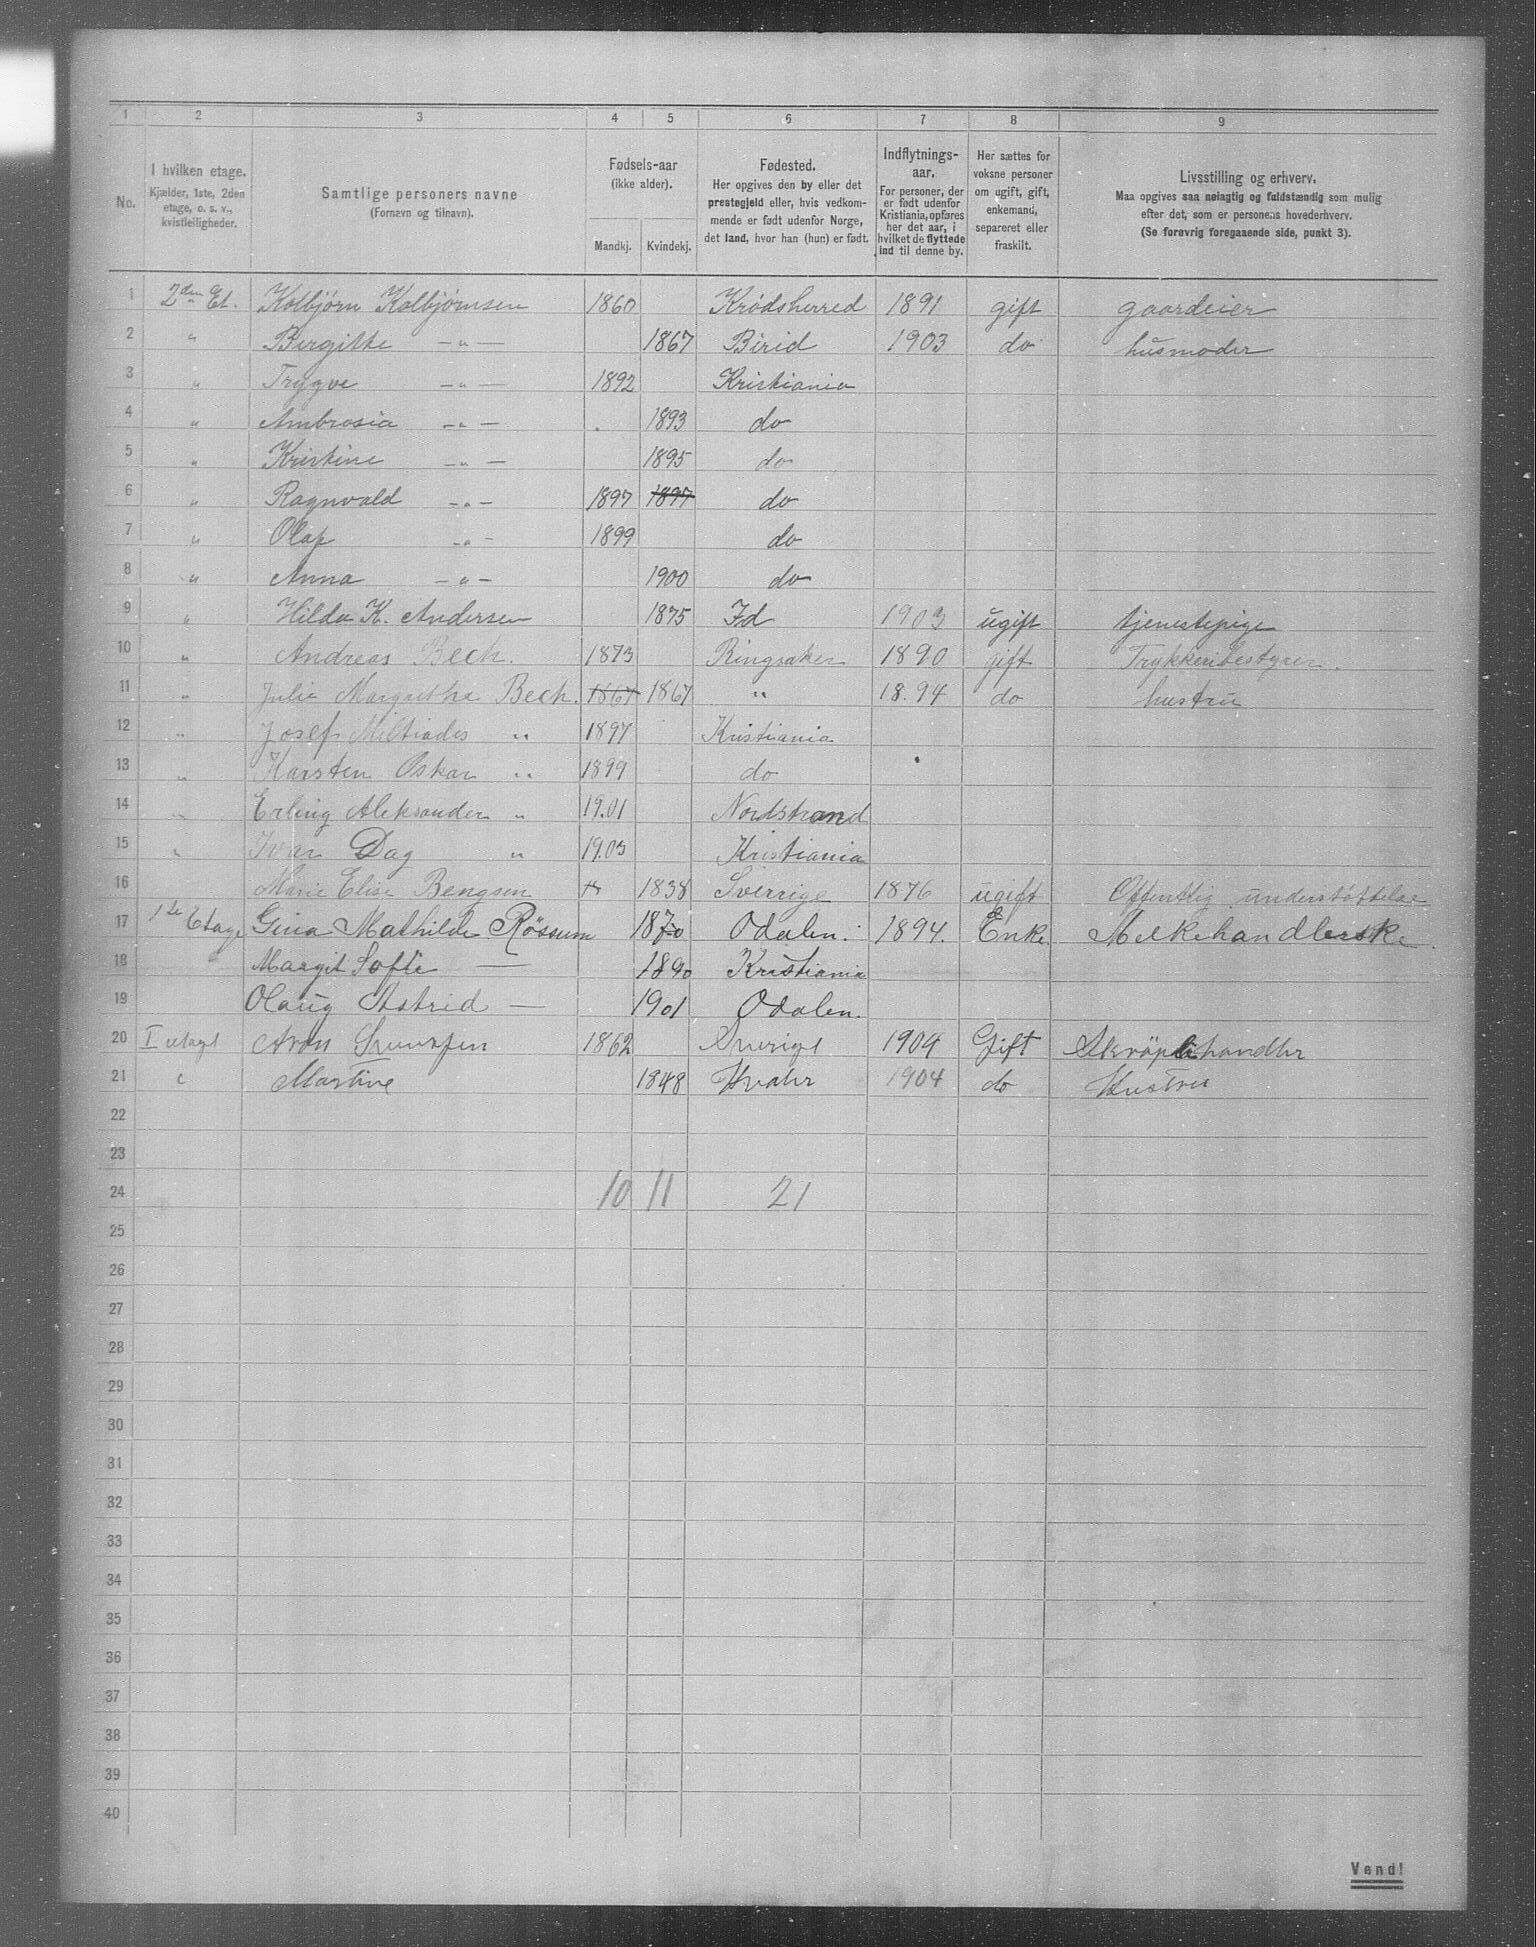 1 2 3 4 5 6 7 8 9
No.
I hvilken etage.
Kjælder, 1ste, 2den
etage, o. s. v.,
kvistleiligheder.
Samtlige personers navne
(Fornavn og tilnavn).
Fødsels-aar
(ikke alder).
Mandkj. Kvindekj.
Fødested.
Her opgives den by eller det
prestegjeld eller, hvis vedkom-
mende er født udenfor Norge,
det land, hvor han (hun) er født.
Indflytnings-
aar.
For personer, der
er født udenfor
Kristiania, opføres
her det aar, i
hvilket de flyttede
ind til denne by.
Her sættes for
voksne personer
om ugift, gift,
enkemand,
separeret eller
fraskilt.
Livsstilling og erhverv.
Maa opgives saa nøiagtig og fuldstændig som mulig
efter det, som er personens hovederhverv.
(Se forøvrig foregaaende side, punkt 3).
1 2den Et. Kolbjørn Kolbjørnsen 1860 Krødsherred 1891 gift gaardeier
2 " Birgitte —"— 1867 Birid 1903 do husmoder
3 " Trygve —"— 1892 Kristiania
4 " Ambrosia —"— 1893 do
5 " Kristine —"— 1895 do
6 " Ragnvald —"— 1897 1897 do
7 " Olaf —"— 1899 do
8 " Anna —"— 1900 do
9 " Hilda K. Andersen 1875 Id 1903 ugift tjenestepige
10 " Andreas Bech. 1873 Ringsaker 1890 gift Trykkeribestyrer.
11 " Julie Margretha Bech. 1867 1867 " 18.94 do hustru
12 " Josef Miltiades " 1897 Kristiania
13 " Karsten Oskar " 1899 do
14 " Erling Aleksander " 19.01 Nordstrand
15 " Ivar Dag " 19.03 Kristiania
16 Marie Elise Bengsen 1838 Sverrige 1876 ugift Offentlig understøttelse
17 1ste Etage Gina Mathilde Røssum 1870 Odalen. 1894. Enke Melkehandlerske.
18 Margit Sofie — 1890 Kristiania
19 Olaug Astrid — 1901 Odalen.
20 I etage Aron 1862 Sverige 1904 Gift
21 " Martine 1848 Hvaler 1904 do Hustru
22
23
24 10 11 21
25
26
27
28
29
30
31
32
33
34
35
36
37
38
39
40
Vend!